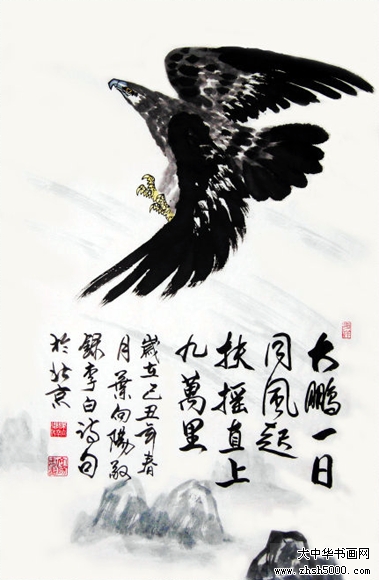 大鹏一日
同風起
扶摇直上
九萬里
歲在己丑年春
月葉向陽敬
録李白诗句
於北京
大中华书画网
www.zhsh5000.com